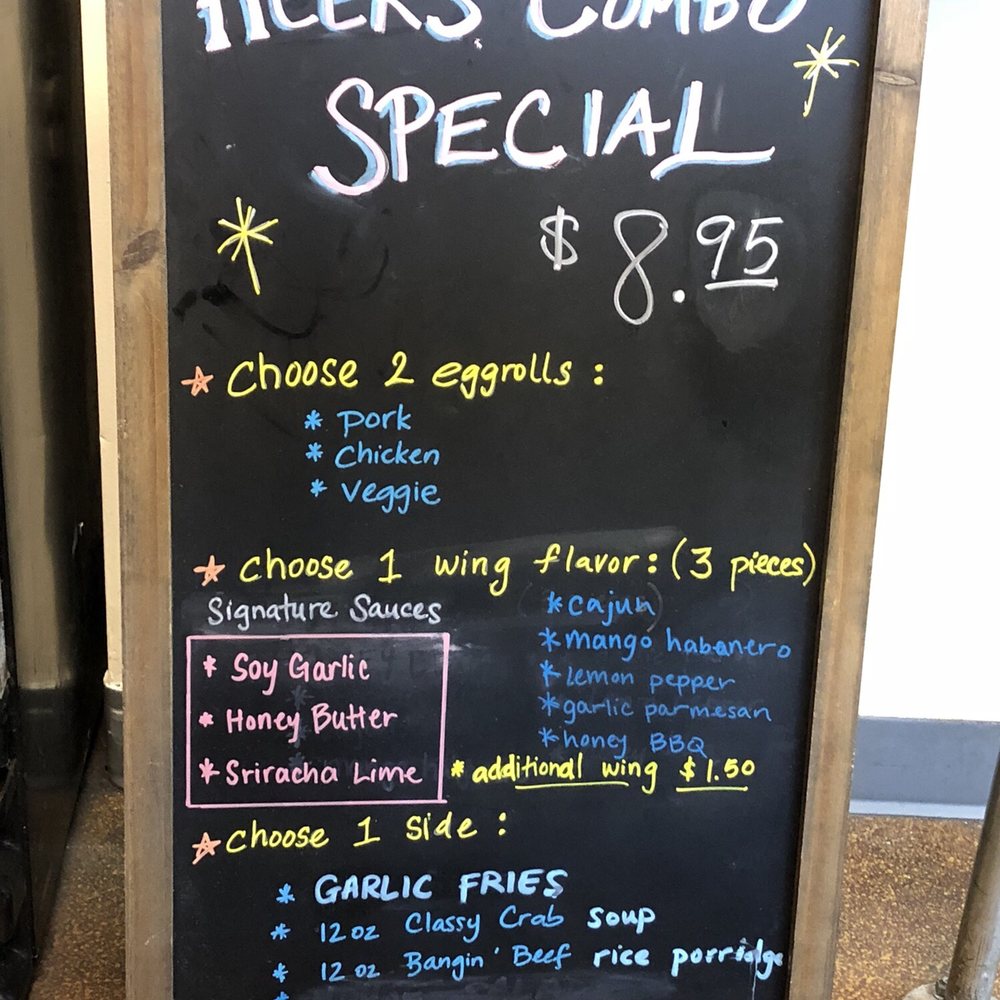 COMBO
SPECIAL
$8.95
Choose 2 eggrolls:
* Pork
* Chicken
* Veggie
Choose 1 wing flavor: (3 pieces)
Signature Sauces
* Soy Garlic
* Honey Butter
* Sriracha Lime
* Cajun
* mango habanero
* lemon pepper
* garlic parmesan
* honey BBQ
* additional wing $1.50
Choose 1 side:
* GARLIC FRIES
* 12 oz Classy Crab soup
* 12 oz Bangin' Beef rice porridge
*